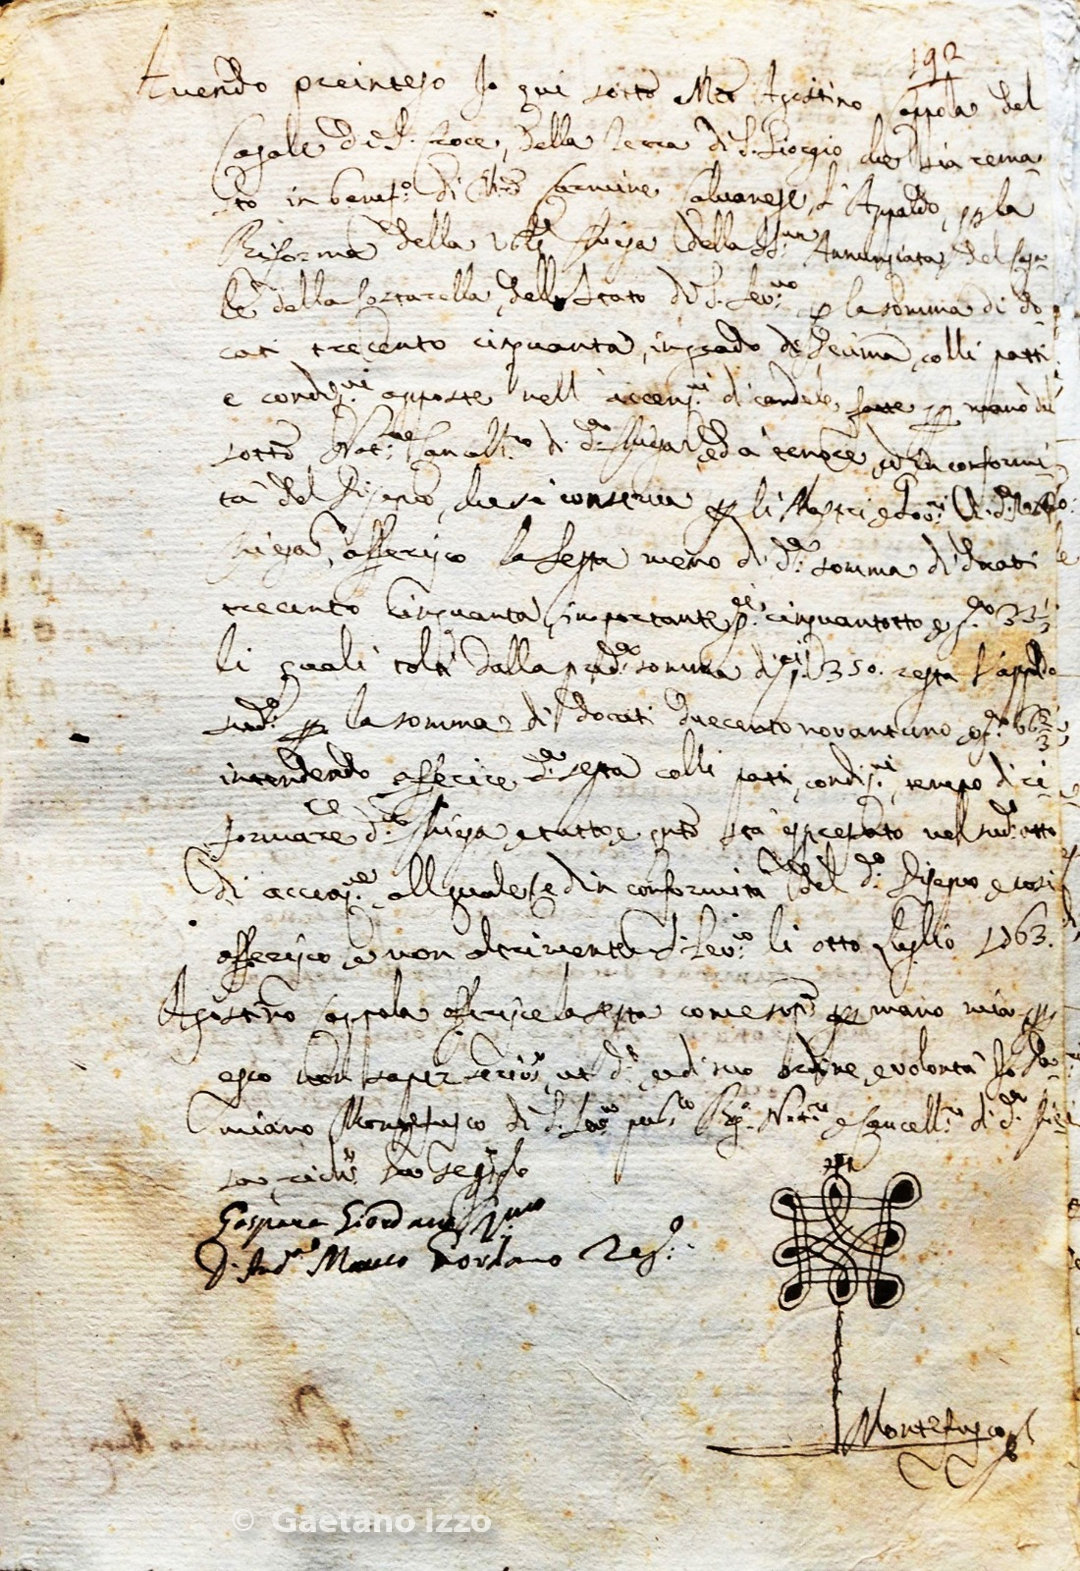 192
Avendo preinteso Io qui sotto Mro Agostino Coppola del
Casale di S. Croce, della Terra di S. Giorgio, che sia rema
sto in benef.o di Mro Carmine Calvanese, l'Appalto, per la
Riforma della Ven.le Chiesa della SS.ma Annunziata, del Casa
le della Costarella, dello Stato di S. Sev.no per la somma di do
cati trecento cinquanta, in grado di decima, colli patti
e condiz.ni apposte nell'accenz.ni di candele fatte per mano del
sotto Not.re Cancell.ro di d.a Chiesa, ed a tenore, ed in conformi
tà del Disegno, che si conserva per li Mastri e Gov.ri di d.a
Chiesa, offerisco la sesta meno di d.a somma di ducati
trecento cinquanta, importante d.ti cinquantotto e g.na 33 1/3
li quali tolti dalla pred.a somma di d.ti 350. resta l'appalto
sud.o per la somma di docati duecento novantuno e g.na 66 2/3
intendendo offerire d.a sesta colli patti, condiz.ni, tempo di ri
formare d.a Chiesa, e tutto e q.nto sta espressato nel sud.o atto
di accenz.ne, al quale, ed in conformità del d.o Disegno e così
offerisco, e non altrimente S. Sev.no li otto Luglio 1763.
Agostino Coppola offerisce la sesta come sop.a per mano mia per
esso non saper scrivere, ut d.t, e di suo ordine, e volontà Io Da
miano Montefusco di S. Sev.no pub.co Reg.o Not.re e Cancell.ro di d.a Chie
sa, rich.to ho segnato
Gaspare Giordano
D. And.a Marco Giordano Tes.
Montefusco
© Gaetano Izzo